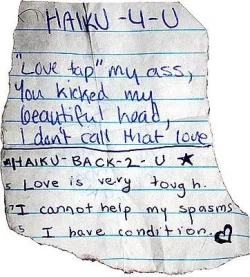 HAIKU-4-U
"Love tap" my ass,
You kicked my
beautiful head,
I don't call that love
HAIKU-BACK-2-U ★
5 Love is very tough.
7 I cannot help my spasms
5 I have condition. ♡